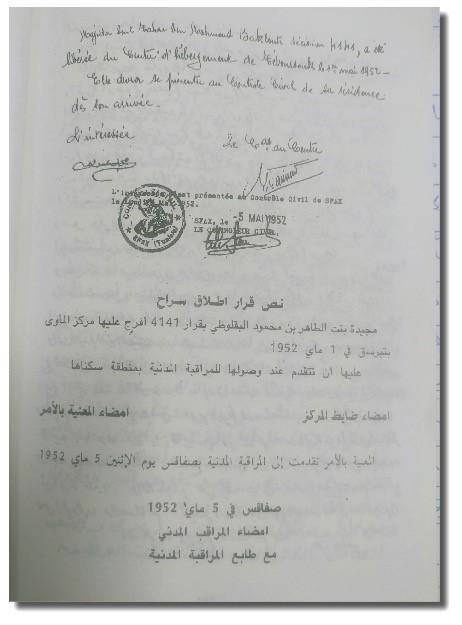 Majida bent Tahar ben Mahmoud Baklouti décision 4141, a été
libérée du Centre d'hébergement de Téboursouk le 1er mai 1952 -
Elle devra se présenter au Contrôle Civil de sa résidence
dès son arrivée.
L'intéressée
Le au Centre
L'Intéressée s'est présentée au Contrôle Civil de SFAX
le MAI 1952.
SFAX, le -5 MAI 1952
LE CONTROLEUR CIVIL,
SFAX (Tunisie)
نص قرار اطلاق سراح
مجيدة بنت الطاهر بن محمود البقلوطي بقرار 4141 أفرج عليها مركز المأوى
بتبرسق في 1 ماي 1952
عليها أن تتقدم عند وصولها للمراقبة المدنية بمنطقة سكناها
امضاء ضابط المركز امضاء المعنية بالأمر
المعنية بالأمر تقدمت إلى المراقبة المدنية بصفاقس يوم الإثنين 5 ماي 1952
صفاقس في 5 ماي 1952
امضاء المراقب المدني
مع طابع المراقبة المدنية